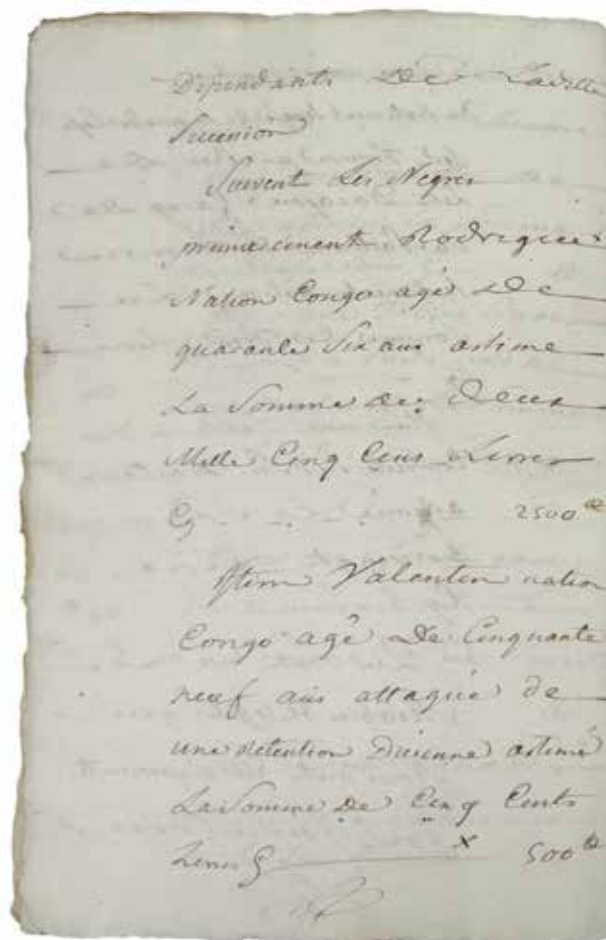 Dependants De Laditte
Succession
Suivent Les Negres
premierement Rodrigues
Nation Congo agé De
quarante Six ans estime
La Somme de Deux
Mille Cinq Cens Livres
Cy 2500 tt
Item Valentin nation
Congo agé De Cinquante
neuf ans attaqué de
une retention Durienne estimé
La Somme De Cinq Cents
Livres Cy x 500 tt